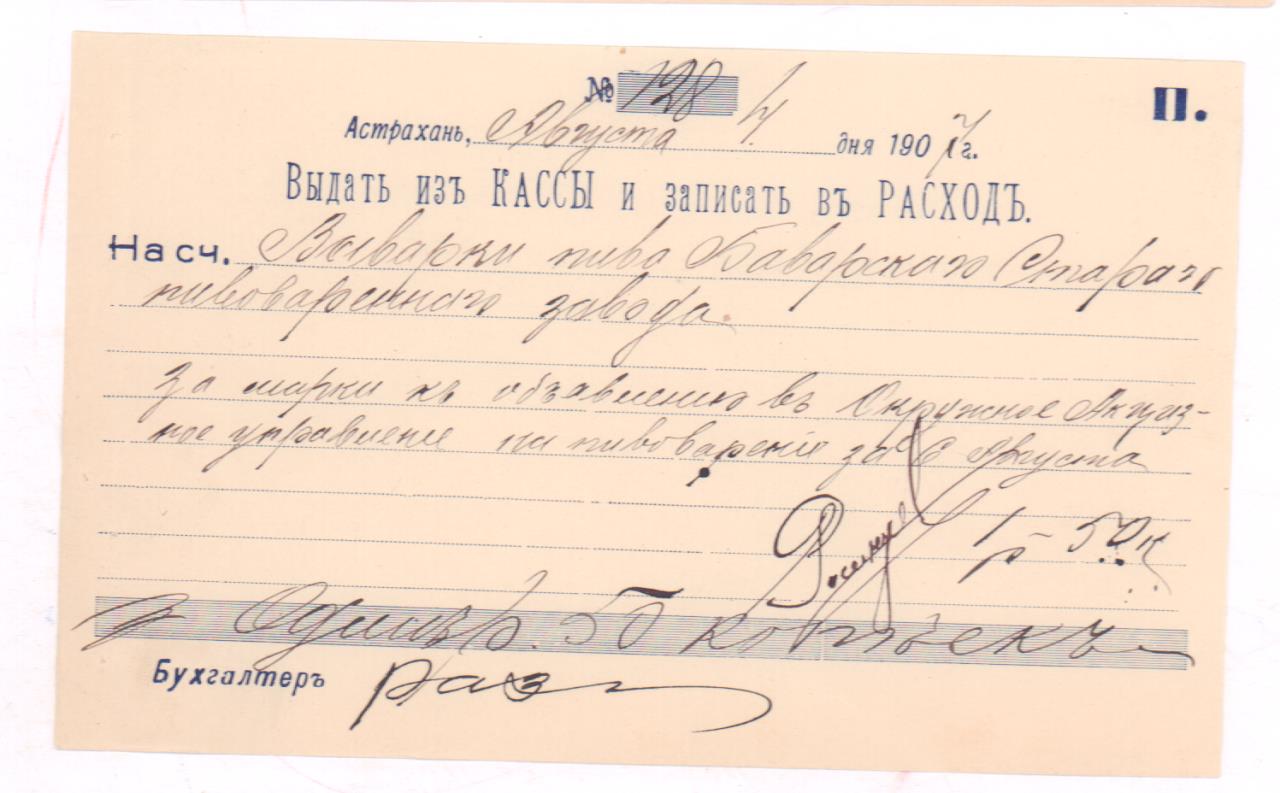 № 128
П.
Астрахань, Августа 4 дня 1907 г.
Выдать изъ КАССЫ и записать въ РАСХОДЪ.
На сч. Выварки пива Баварскаго Стараго
пивовареннаго завода
за марки къ объявлению въ Окружное Акциз-
ное управление на пивоварение за 6 Августа
1 р 50 к
Одинъ р. 50 копѣекъ
Бухгалтеръ